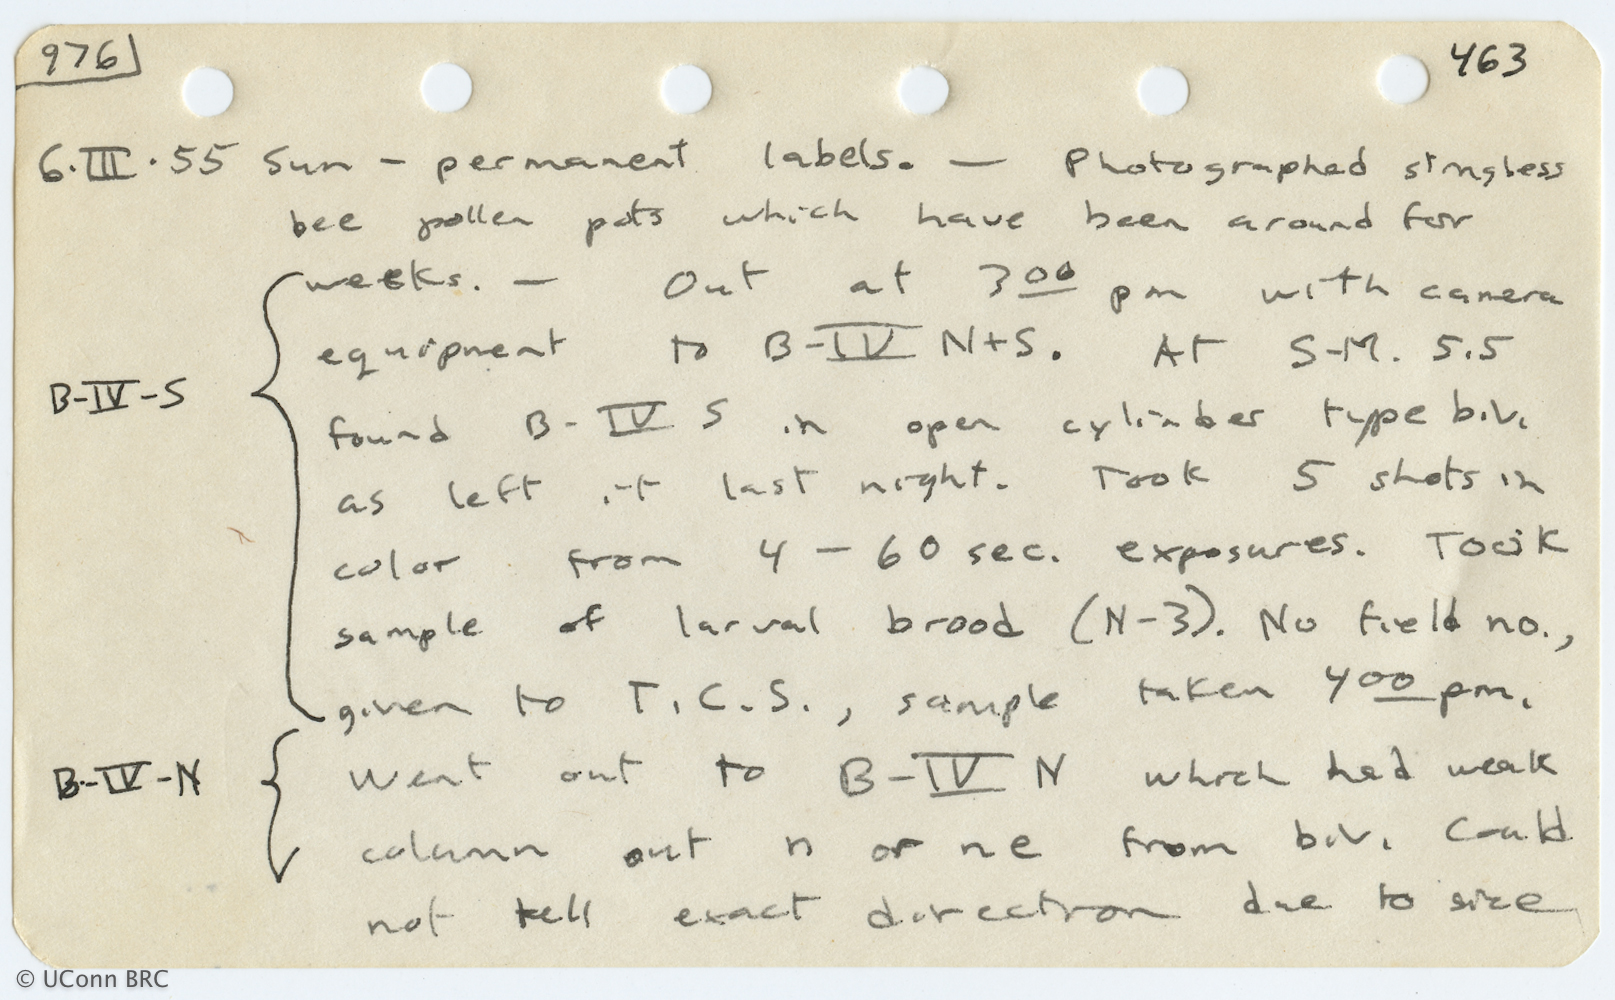 976
463
6.III.55 Sun - permanent labels. — Photographed stingless
bee pollen pots which have been around for
weeks. — Out at 3 00 pm with camera
equipment to B-IV N+S. At S-M. 5.5
B-IV-S
found B-IV S in open cylinder type biv.
as left it last night. Took 5 shots in
color from 4 - 60 sec. exposures. Took
sample of larval brood (N-3). No field no.,
given to T.C.S., sample taken 4 00 pm.
B-IV-N
Went out to B-IV N which had weak
column out n or ne from biv. Could
not tell exact direction due to size
© UConn BRC